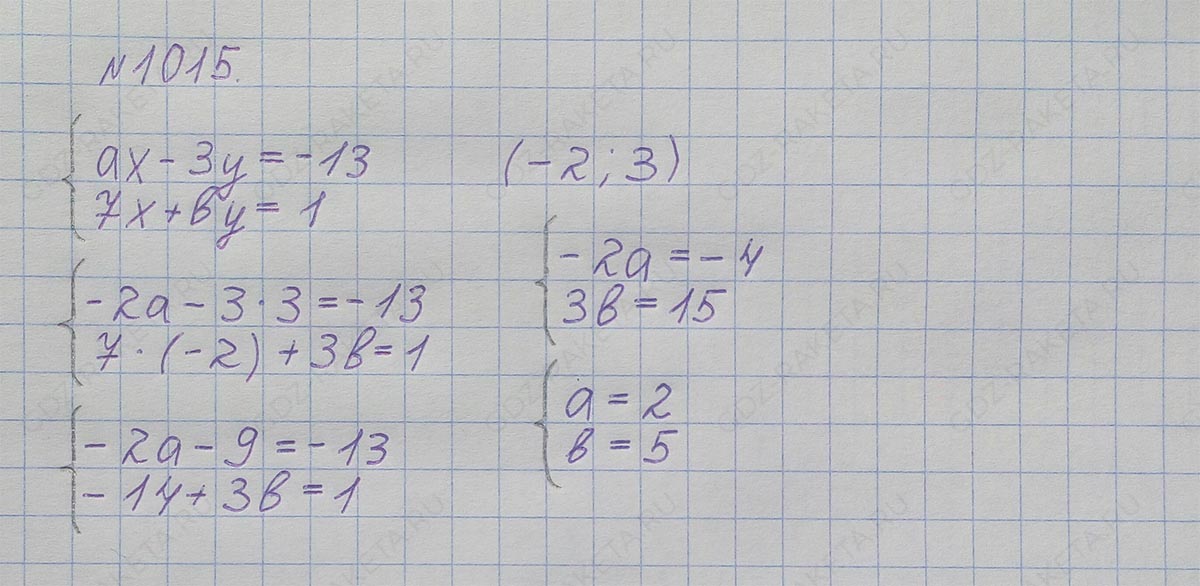 №1015.
ax - 3y = -13
7x + вy = 1
-2a - 3·3 = -13
7·(-2) + 3в = 1
-2a - 9 = -13
-14 + 3в = 1
(-2; 3)
-2a = -4
3в = 15
a = 2
в = 5
GDZ-RAKETA.RU